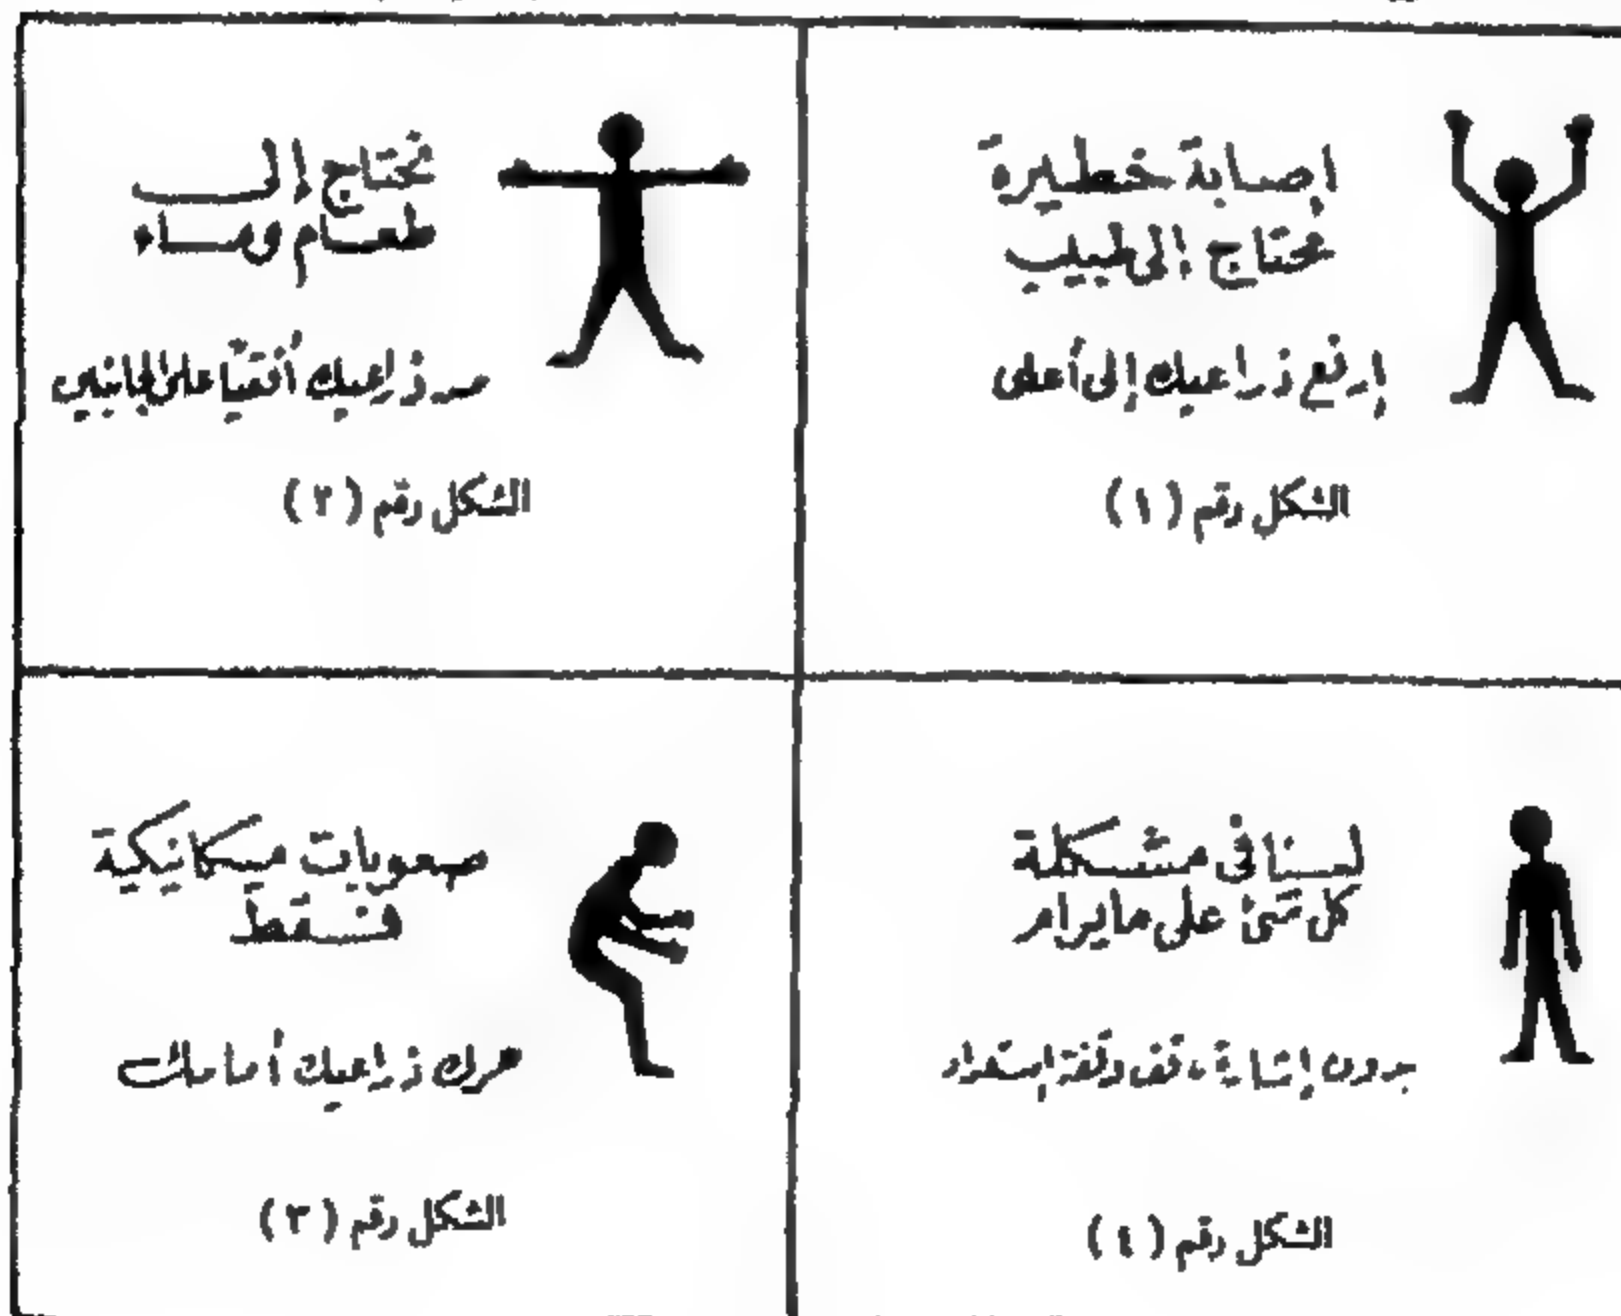 إصابة خطيرة
نحتاج إلى طبيب
إرفع ذراعيك إلى أعلى
الشكل رقم (١)
نحتاج إلى
طعام وماء
مد ذراعيك أفقيًا على الجانبين
الشكل رقم (٢)
لسنا في مشكلة
كل شئ على مايرام
بدون إشارة، قف وقفة إستعداد
الشكل رقم (٤)
صعوبات ميكانيكية
فقط
حرك ذراعيك أمامك
الشكل رقم (٣)